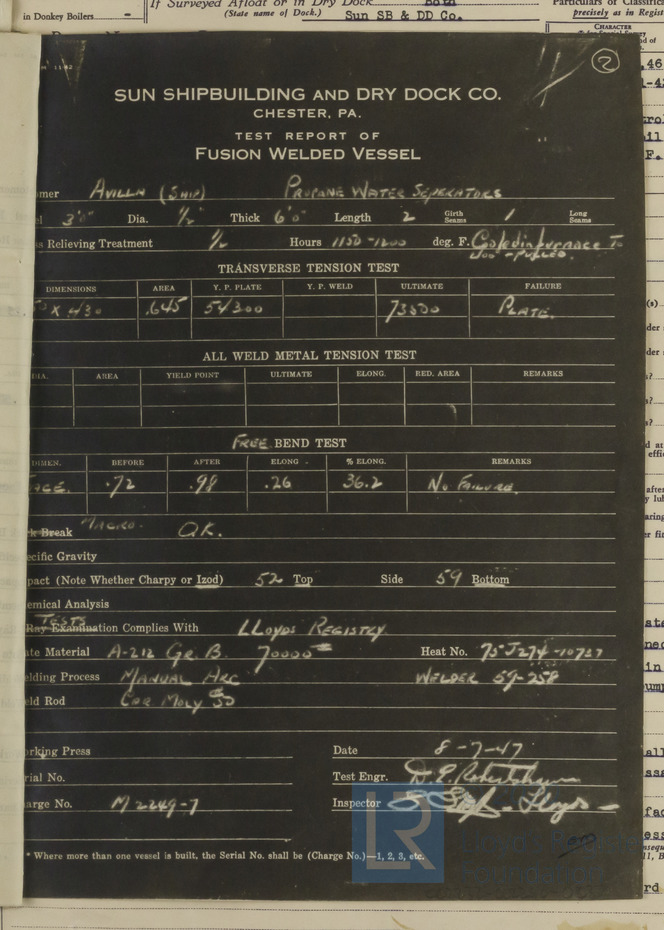 in Donkey Boilers
If Surveyed Afloat or in Dry Dock Both
(State name of Dock.) Sun SB & DD Co.
Particulars of Classifica
precisely as in Regist
CHARACTER
2
SUN SHIPBUILDING AND DRY DOCK CO.
CHESTER, PA.
TEST REPORT OF
FUSION WELDED VESSEL
omer AVILLA (SHIP) PROPANE WATER SEPERATORS
el 3'0" Dia. 1/2" Thick 6'0" Length 2 Girth Seams 1 Long Seams
s Relieving Treatment 1/2 Hours 1150-1200 deg. F. Cooled in furnace to
TRANSVERSE TENSION TEST
DIMENSIONS AREA Y. P. PLATE Y. P. WELD ULTIMATE FAILURE
x 430 .645 54300 73500 PLATE.
ALL WELD METAL TENSION TEST
DIA. AREA YIELD POINT ULTIMATE ELONG. RED. AREA REMARKS
FREE BEND TEST
DIMEN. BEFORE AFTER ELONG. % ELONG. REMARKS
ACE. .72 .98 .26 36.2 NO FAILURE.
k Break MACRO. O.K.
ecific Gravity
pact (Note Whether Charpy or Izod) 52 Top Side 59 Bottom
emical Analysis
Ray Examination TESTS Complies With LLOYDS REGISTRY
ate Material A-212 GR. B. 70000# Heat No. 75J274-10757
elding Process MANUAL ARC WELDER 59-258
eld Rod COR MOLY
orking Press Date 8-7-47
rial No. Test Engr. D. E. Robertshaw
arge No. M2249-7 Inspector Lloyds
* Where more than one vessel is built, the Serial No. shall be (Charge No.)—1, 2, 3, etc.
LR
Lloyd's Register
Foundation